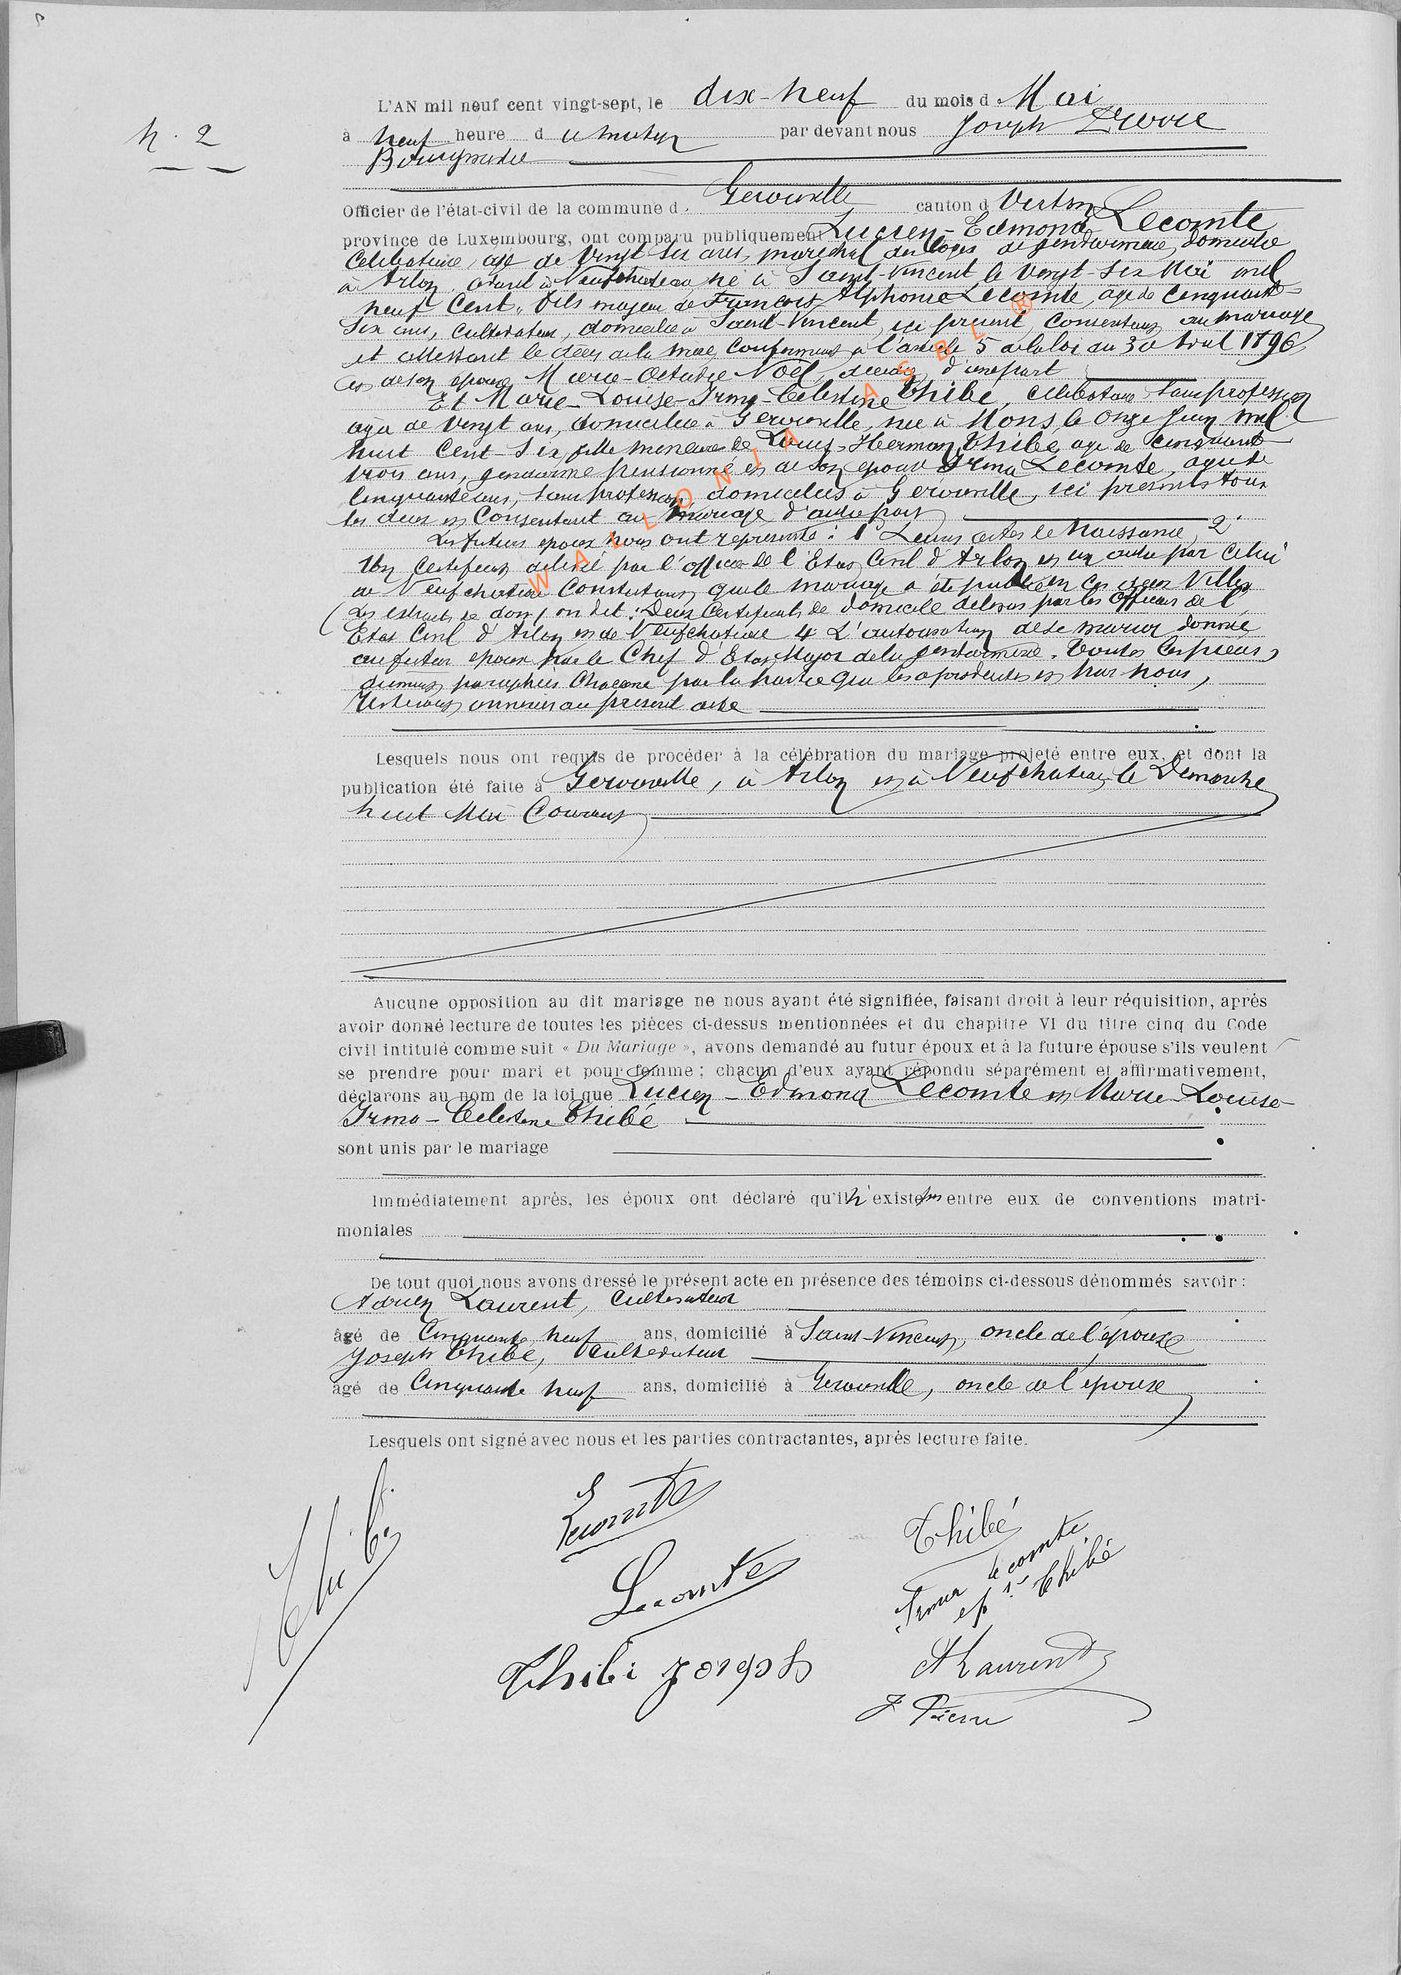 n. 2
L'AN mil neuf cent vingt-sept, le dix-neuf du mois d Mai
à neuf heure d u matin par devant nous Joseph Pierre
Bourgmestre
Officier de l'état-civil de la commune d. Gérouville canton d Virton
province de Luxembourg, ont comparu publiquement Lucien-Edmond Lecomte
célibataire, âgé de vingt six ans, maréchal des logis de gendarmerie, domicilié
à Arlon, avant à Neufchateau né à Saint-Vincent le vingt-six Mai mil
neuf cent, fils majeur de François Alphonse Lecomte, âgé de cinquante-
six ans, cultivateur, domicilié à Saint-Vincent, ici présent, consentant au mariage
et attestant le décès de la mère, conformément à l'article 5 de la loi du 30 Avril 1896
et de son épouse Marie-Octavie Noël, décédée, d'une part
Et Marie-Louise-Irma-Célestine Thibé, célibataire, sans profession
âgée de vingt ans, domiciliée à Gérouville, née à Mons le onze Juin mil
huit cent-six fille mineure de Louis-Herman Thibé, âgé de cinquante
trois ans, gendarme pensionné et de son épouse Irma Lecomte, âgée de
cinquante ans, sans profession domiciliés à Gérouville, ici présents tous
les deux et consentant au mariage d'autre part
Les futurs époux nous ont représenté : 1° Leurs actes de Naissance, 2°
Un certificat délivré par l'officier de l'Etat Civil d'Arlon et un autre par celui
de Neufchateau constatant que le mariage a été publié en ces deux Villes
(Les extraits de dom) on dit : Deux certificats de domicile délivrés par les Officiers de l'
Etat Civil d'Arlon et de Neufchateau 4° L'autorisation de se marier donnée
au futur époux par le Chef d'Etat-Major de la gendarmerie. Toutes ces pièces,
dûment paraphées chacune par la partie qui les a produites et par nous,
resteront annexées au présent acte
Lesquels nous ont requis de procéder à la célébration du mariage projeté entre eux, et dont la
publication été faite à Gérouville, à Arlon et à Neufchateau le Dimanche
huit Mai courant
Aucune opposition au dit mariage ne nous ayant été signifiée, faisant droit à leur réquisition, après
avoir donné lecture de toutes les pièces ci-dessus mentionnées et du chapitre VI du titre cinq du Code
civil intitulé comme suit « Du Mariage », avons demandé au futur époux et à la future épouse s'ils veulent
se prendre pour mari et pour femme ; chacun d'eux ayant répondu séparément et affirmativement,
déclarons au nom de la loi que Lucien-Edmond Lecomte et Marie-Louise-
Irma-Célestine Thibé
sont unis par le mariage
Immédiatement après, les époux ont déclaré qu'il n'existe pas entre eux de conventions matri-
moniales
De tout quoi nous avons dressé le présent acte en présence des témoins ci-dessous dénommés savoir :
Adrien Laurent, cultivateur
âgé de Cinquante neuf ans, domicilié à Saint-Vincent, oncle de l'épouse
Joseph Thibé, cultivateur
âgé de Cinquante neuf ans, domicilié à Gérouville, oncle de l'épouse
Lesquels ont signé avec nous et les parties contractantes, après lecture faite.
Thibé
Lecomte
Thibé
Lecomte
Irma Lecomte
ep se Thibé
Thibé Joseph
A Laurent
J. Pierre
WALLONIA ASBL ®